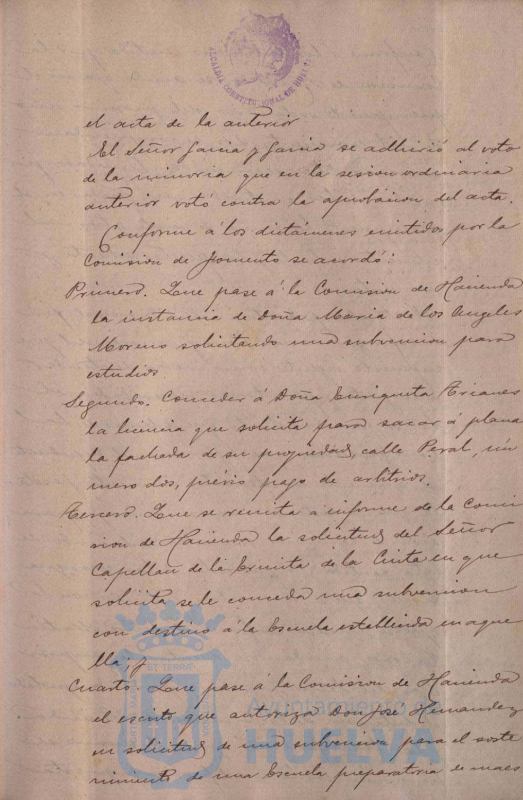 ALCALDIA CONSTITUCIONAL DE HUELVA
el acta de la anterior
El Señor Garcia y Garcia se adhirió al voto
de la minoria que en la sesion ordinaria
anterior votó contra la aprobacion del acta.
Conforme á los dictámenes emitidos por la
Comision de Fomento se acordó:
Primero. Que pase á la Comision de Hacienda
la instancia de Doña Maria de los Angeles
Moreno solicitando una subvencion para
estudios
Segundo. Conceder á Doña Enriqueta
la licencia que solicita para sacar á plana
la fachada de su propiedad, calle Peral, nú
mero dos, prévio pago de arbitrios.
Tercero. Que se remita á informe de la Comi
sion de Hacienda la solicitud del Señor
Capellan de la Ermita de la Cinta en que
solicita se le conceda una subvencion
con destino á la Escuela establecida en aque
lla; y
Cuarto. Que pase á la Comision de Hacienda
el escrito que autoriza Don José Hernandez
en solicitud de una subvencion para el soste
nimiento de una Escuela preparatoria de maes
Ayuntamiento de
HUELVA